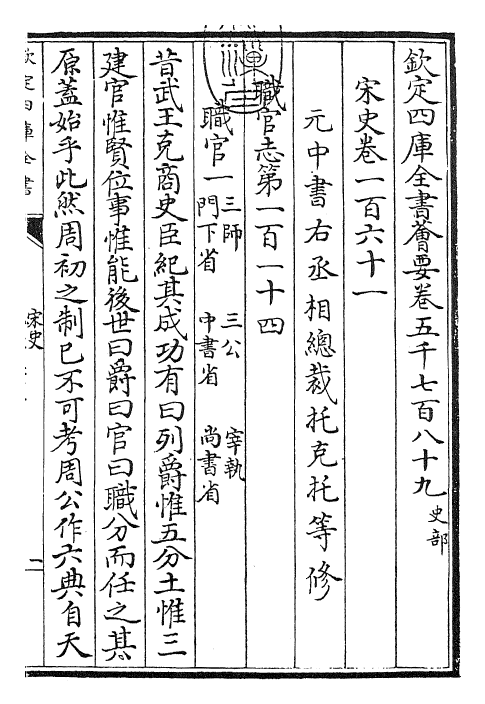 欽定四庫全書薈要卷五千七百八十九 史部
宋史卷一百六十一
元中書右丞相總裁托克托等修
職官志第一百一十四
職官一 三師 三公 宰執
門下省 中書省 尚書省
昔武王克商史臣紀其成功有曰列爵惟五分土惟三
建官惟賢位事惟能後世曰爵曰官曰職分而任之其
原蓋始乎此然周初之制已不可考周公作六典自天
欽定四庫全書
宋史